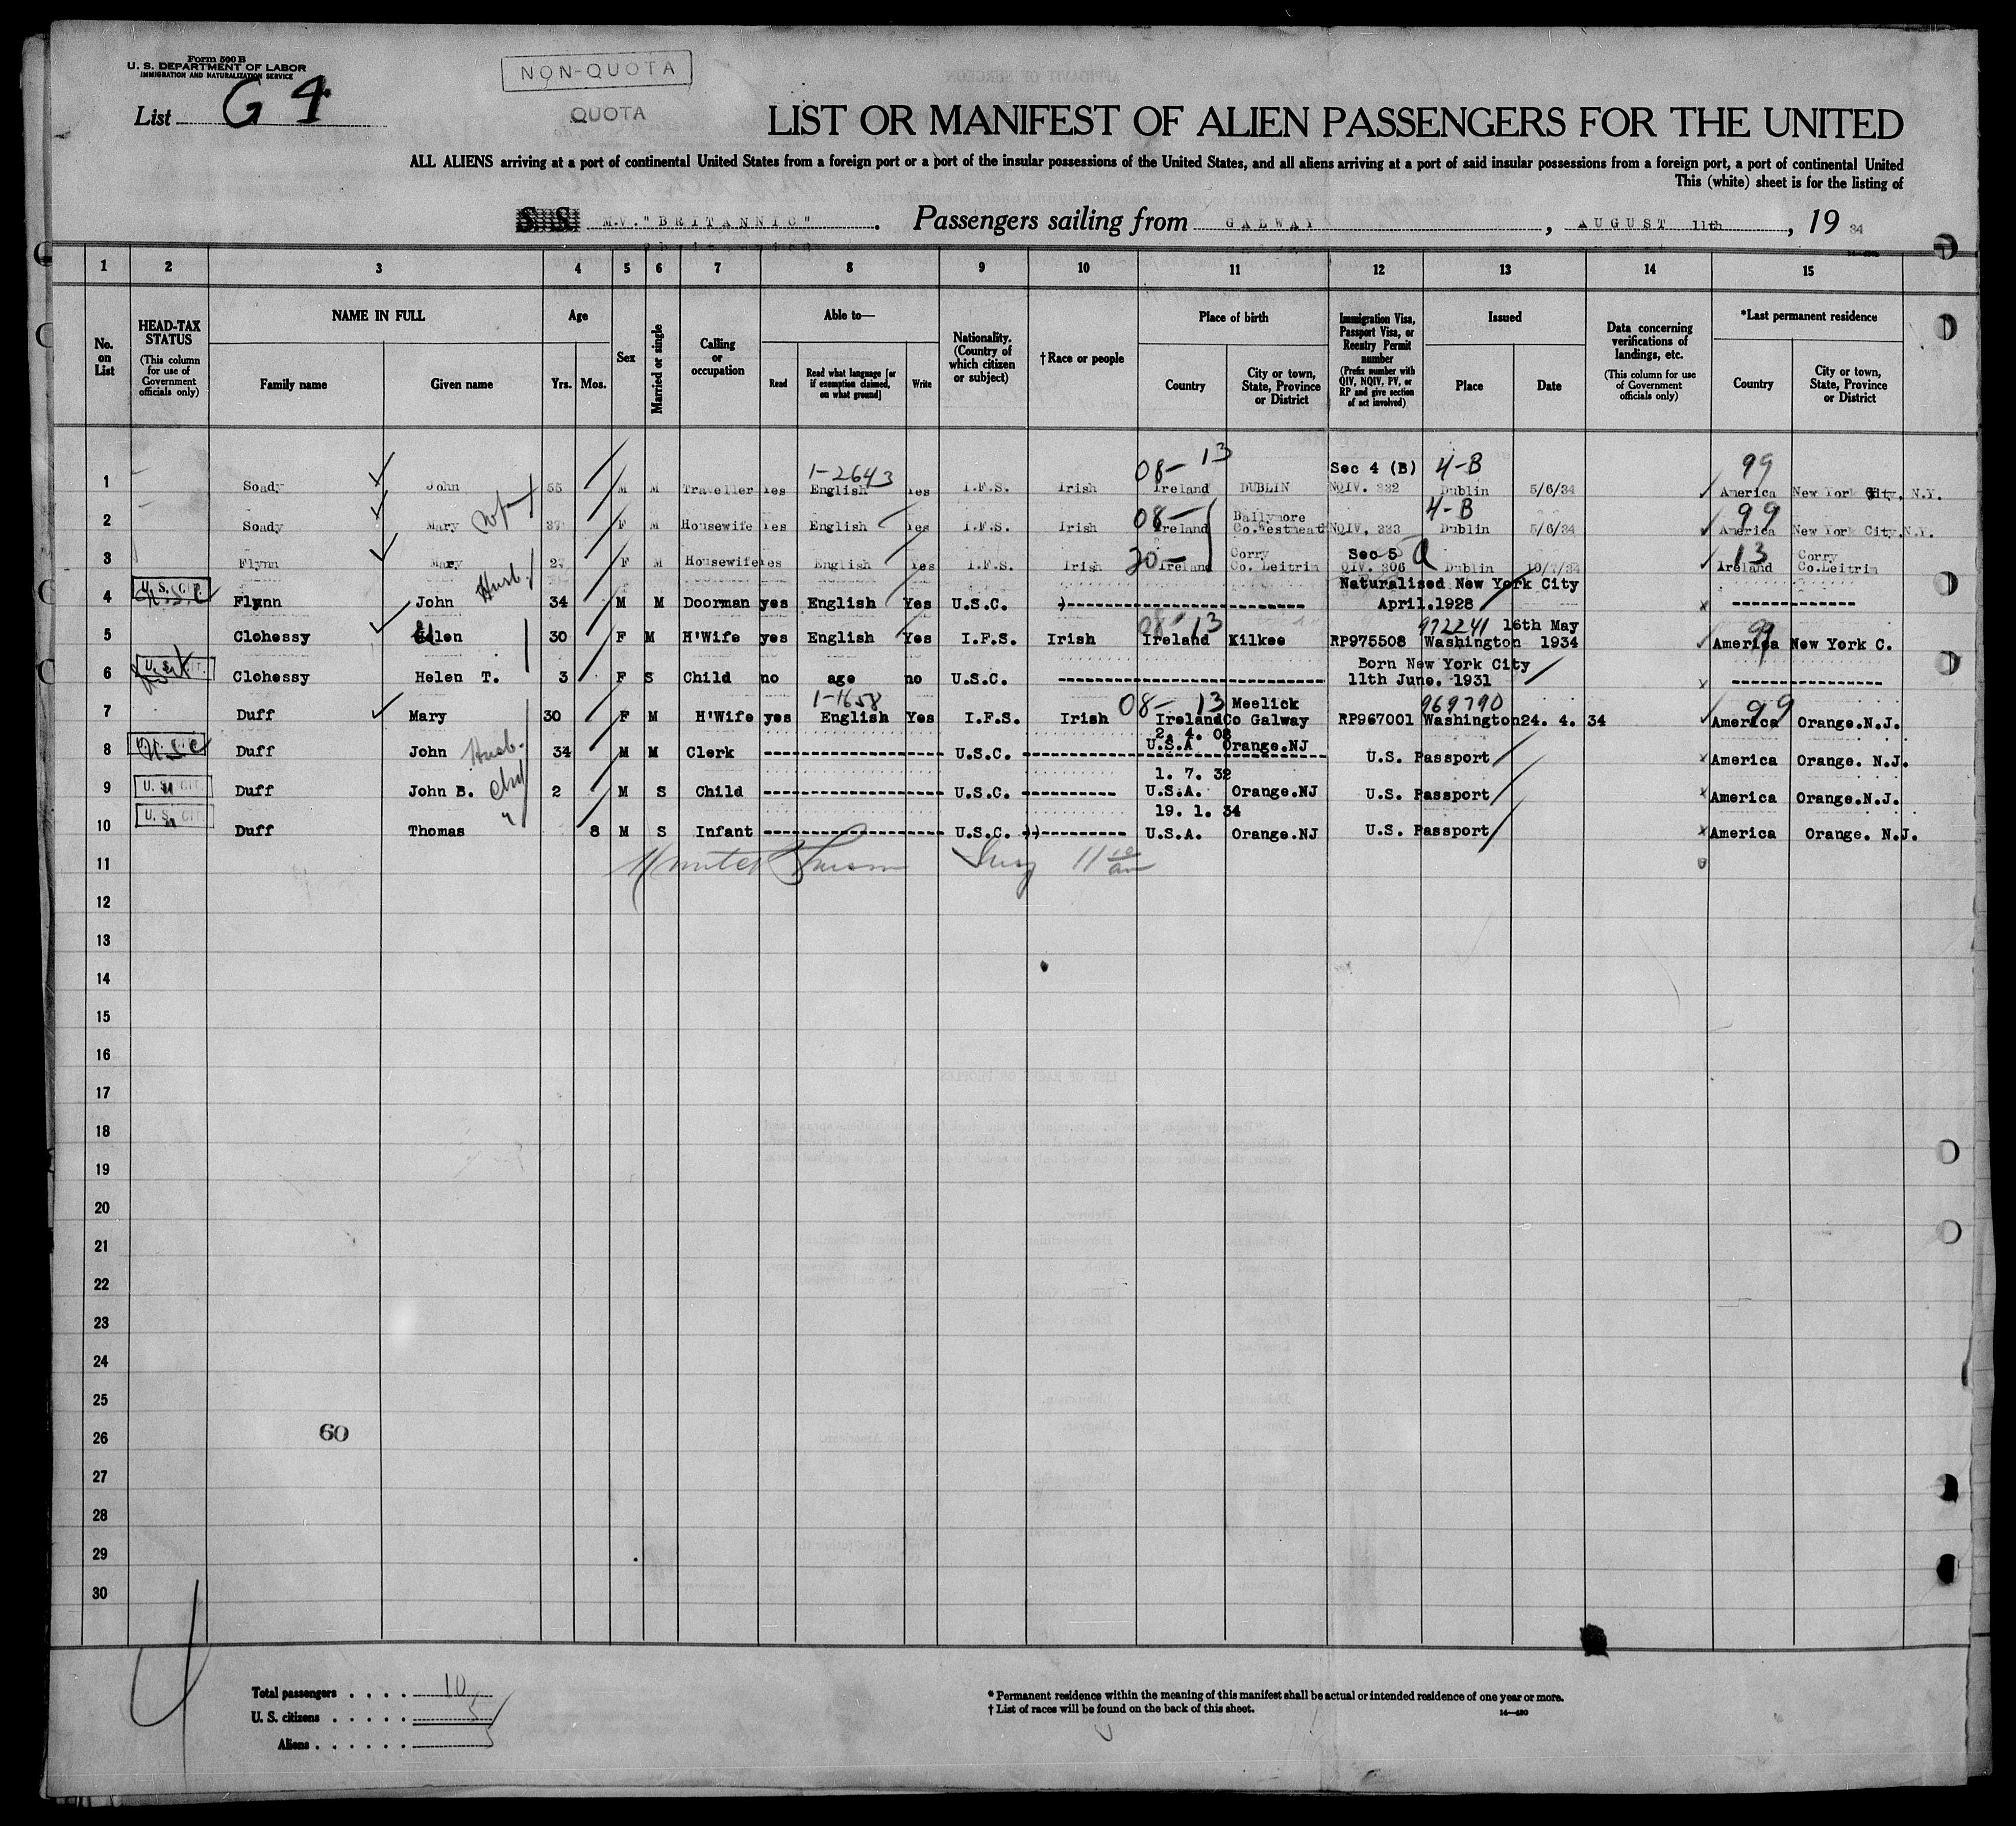 Form 500 B
U. S. DEPARTMENT OF LABOR
IMMIGRATION AND NATURALIZATION SERVICE
NON-QUOTA
QUOTA
List G 4
LIST OR MANIFEST OF ALIEN PASSENGERS FOR THE UNITED
ALL ALIENS arriving at a port of continental United States from a foreign port or a port of the insular possessions of the United States, and all aliens arriving at a port of said insular possessions from a foreign port, a port of continental United
This (white) sheet is for the listing of
M.V. "BRITANNIC". Passengers sailing from GALWAY, AUGUST 11th, 19 34
1 2 3 4 5 6 7 8 9 10 11 12 13 14 15
No. on List
HEAD-TAX STATUS (This column for use of Government officials only)
NAME IN FULL
Family name Given name
Age
Yrs. Mos.
Sex
Married or single
Calling or occupation
Able to—
Read Read what language [or if exemption claimed, on what ground] Write
Nationality. (Country of which citizen or subject)
† Race or people
Place of birth
Country City or town, State, Province or District
Immigration Visa, Passport Visa, or Reentry Permit number (Prefix number with QIV, NQIV, PV, or RP and give section of act involved)
Issued
Place Date
Data concerning verifications of landings, etc. (This column for use of Government officials only)
*Last permanent residence
Country City or town, State, Province or District
1-2643 08- 13 Sec 4 (B) 4-B 99
1 Soady John 55 M M Traveller Yes English Yes I.F.S. Irish Ireland DUBLIN NQIV. 332 Dublin 5/6/34 America New York City, N.Y.
08- Ballymore 4-B 99
2 Soady Mary wf 37 F M Housewife Yes English Yes I.F.S. Irish Ireland Co.Westmeath NQIV. 333 Dublin 5/6/34 America New York City, N.Y.
20- Corry Sec 5 a 13 Corry
3 Flynn Mary 27 F M Housewife Yes English Yes I.F.S. Irish Ireland Co. Leitrim QIV. 306 Dublin 10/7/34 Ireland Co.Leitrim
U. S. CIT. Husb. Naturalised New York City
4 Flynn John 34 M M Doorman yes English Yes U.S.C. April.1928
08- 13 972241 16th May 99
5 Clohessy Helen 30 F M H'Wife yes English Yes I.F.S. Irish Ireland Kilkee RP975508 Washington 1934 America New York C.
U. S. CIT. Born New York City
6 Clohessy Helen T. 3 F S Child no age no U.S.C. 11th June. 1931
1-1658 08- 13 Meelick 969790 99
7 Duff Mary 30 F M H'Wife yes English Yes I.F.S. Irish Ireland Co Galway RP967001 Washington 24. 4. 34 America Orange.N.J.
2. 4. 08
8 U.S.C Duff John Husb. 34 M M Clerk U.S.C. U.S.A Orange.NJ U.S. Passport America Orange. N.J.
1. 7. 32
9 U. S. CIT. Duff John B. chd 2 M S Child U.S.C. U.S.A. Orange.NJ U.S. Passport America Orange.N.J.
19. 1. 34
10 U. S. CIT. Duff Thomas " 8 M S Infant U.S.C. U.S.A. Orange.NJ U.S. Passport America Orange. N.J.
11
12
13
14
15
16
17
18
19
20
21
22
23
24
25
26 60
27
28
29
30
Total passengers . . . . 10
U. S. citizens . . . . . 5
Aliens . . . . . . 5
* Permanent residence within the meaning of this manifest shall be actual or intended residence of one year or more.
† List of races will be found on the back of this sheet.
14—430